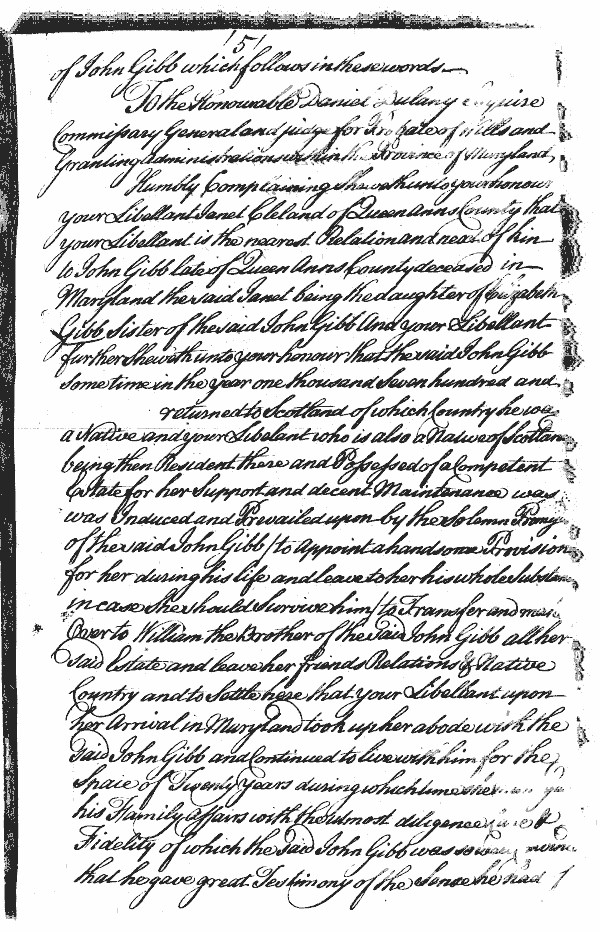 151
of John Gibb which follows in these words
To the Honourable Daniel Dulany Esquire
Commissary General and judge for Probate of wills and
Granting Administrations within the Province of Maryland
Humbly Complaining Sheweth unto your honour
your Libellant Janet Cleland of Queen Anns County that
your Libellant is the nearest Relation and next of kin
to John Gibb late of Queen Anns County deceased in
Maryland the said Janet being the daughter of Elizabeth
Gibb Sister of the said John Gibb And your Libellant
further Sheweth unto your honour that the said John Gibb
some time in the year one thousand Seven hundred and
returned to Scotland of which Country he was
a Native and your Libelant who is also a Native of Scotlan
being then Resident there and Possessed of a Competent
Estate for her Support and decent Maintenance was
was Induced and Prevailed upon by the Solemn
of the said John Gibb /to Appoint a handsome Provision
for her during his life and leave to her his whole Substan
in case She should Survive him/ to Transfer and
Over to William the Brother of the said John Gibb all her
said Estate and leave her friends Relations & Native
Country and to Settle here that your Libellant upon
her Arrival in Maryland took up her abode with the
Said John Gibb and Continued to live with him for the
Space of Twenty Years during which time she
his Family affairs with the utmost diligence &
Fidelity of which the Said John Gibb was so
that he gave great Testimony of the Sense he had